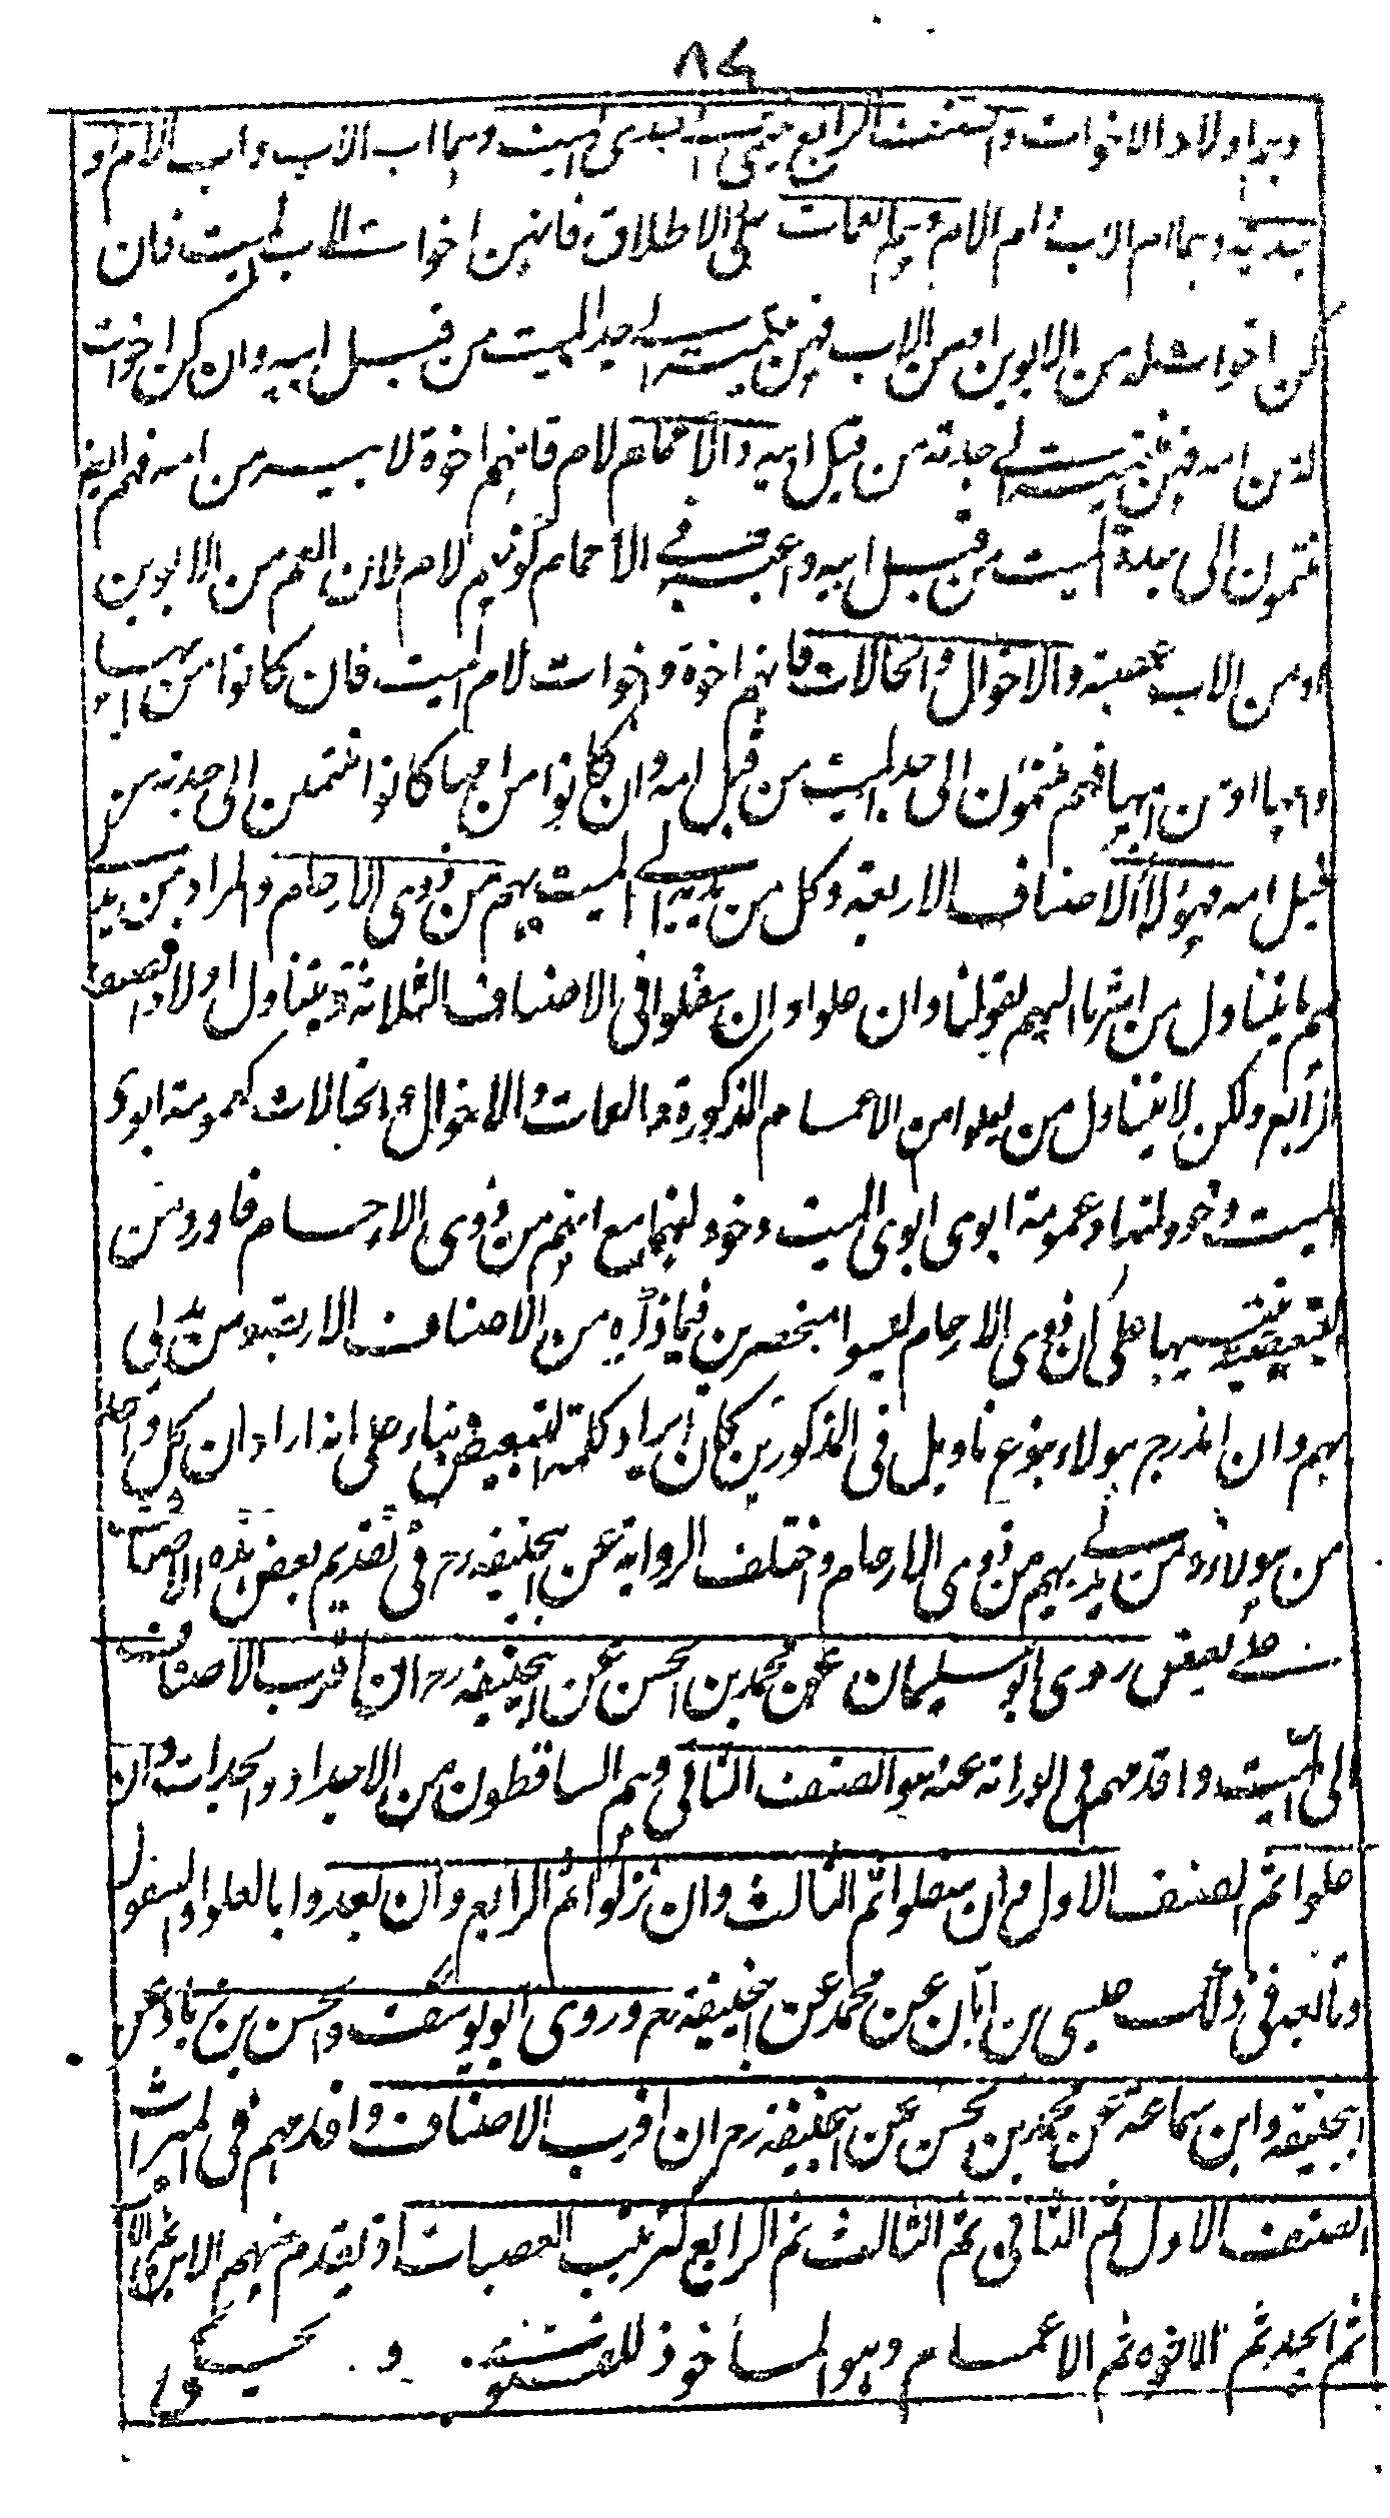 ٨٤
وبهذا اولاد الاخوات والصنف الرابع ينتمى الى جدى الميت وهما اب الاب واب الام او
جدتيه وهما ام الاب وام الام وهم العمات على الاطلاق فانهن اخوات لاب الميت فان
كن اخوات له من الابوين او من الاب فهن منتمية الى جد الميت من قبل ابيه وان كن اخوات
له من امه فهن منتمية الى جدته من قبل ابيه والاعمام لام فانهم اخوة لابيه من امه فهم ايضا
منتمون الى جدة الميت من قبل ابيه واعتبر فى الاعمام كونهم لام لان العم من الابوين
او من الاب عصبة والاخوال والخالات فانهم اخوة واخوات لام الميت فان كانوا من ابيها
وامها او من ابيها فهم منتمون الى جد الميت من قبل امه وان كانوا من امها كانوا منتمين الى جدته من
قبل امه فهؤلاء الاصناف الاربعة وكل من يدلى الى الميت بهم من ذوى الارحام والمراد بمن يدلى
بهم ما يتناول من اشرنا اليهم بقولنا وان علوا وان سفلوا فى الاصناف الثلاثة ويتناول اولاد الصنف
الرابع ولكن لا يتناول من يعلوا من الاعمام المذكورة والعمات والاخوال والخالات كعمومة ابوى
الميت وخؤولتهما وعمومة ابوى ابوى الميت وخؤولتهما مع انهم من ذوى الارحام فاورد من
التبعيضية تنبيها على ان ذوى الارحام ليسوا منحصرين فيما ذكره من الاصناف الاربعة ومن يدلى
بهم وان اندرج هولاء بنوع تاويل فى المذكورين كان ايراد كلمة التبعيض بناء على انه اراد ان كل واحد
من هولاء ومن يدلى بهم من ذوى الارحام واختلف الرواية عن ابيحنيفه رح فى تقديم بعض هذه الاصناف
على بعض روى ابو سليمان عن محمد بن الحسن عن ابيحنيفه رح ان اقرب الاصناف
الى الميت واقدمهم فى الوراثة عنه هو الصنف الثانى وهم الساقطون من الاجداد والجدات وان
علوا ثم الصنف الاول وان سفلوا ثم الثالث وان نزلوا ثم الرابع وان بعدوا بالعلو او السفول
وتابعه فى ذلك عيسى بن ابان عن محمد عن ابيحنيفة رح وروى ابو يوسف والحسن بن زياد عن
ابيحنيفه وابن سماعه عن محمد بن الحسن عن ابيحنيفة رح ان اقرب الاصناف واقدمهم فى الميراث
الصنف الاول ثم الثانى ثم الثالث ثم الرابع كترتيب العصبات اذ يقدم منهم الابن ثم الاب
ثم الجد ثم الاخوة ثم الاعمام وهو الماخوذ للفتوى و